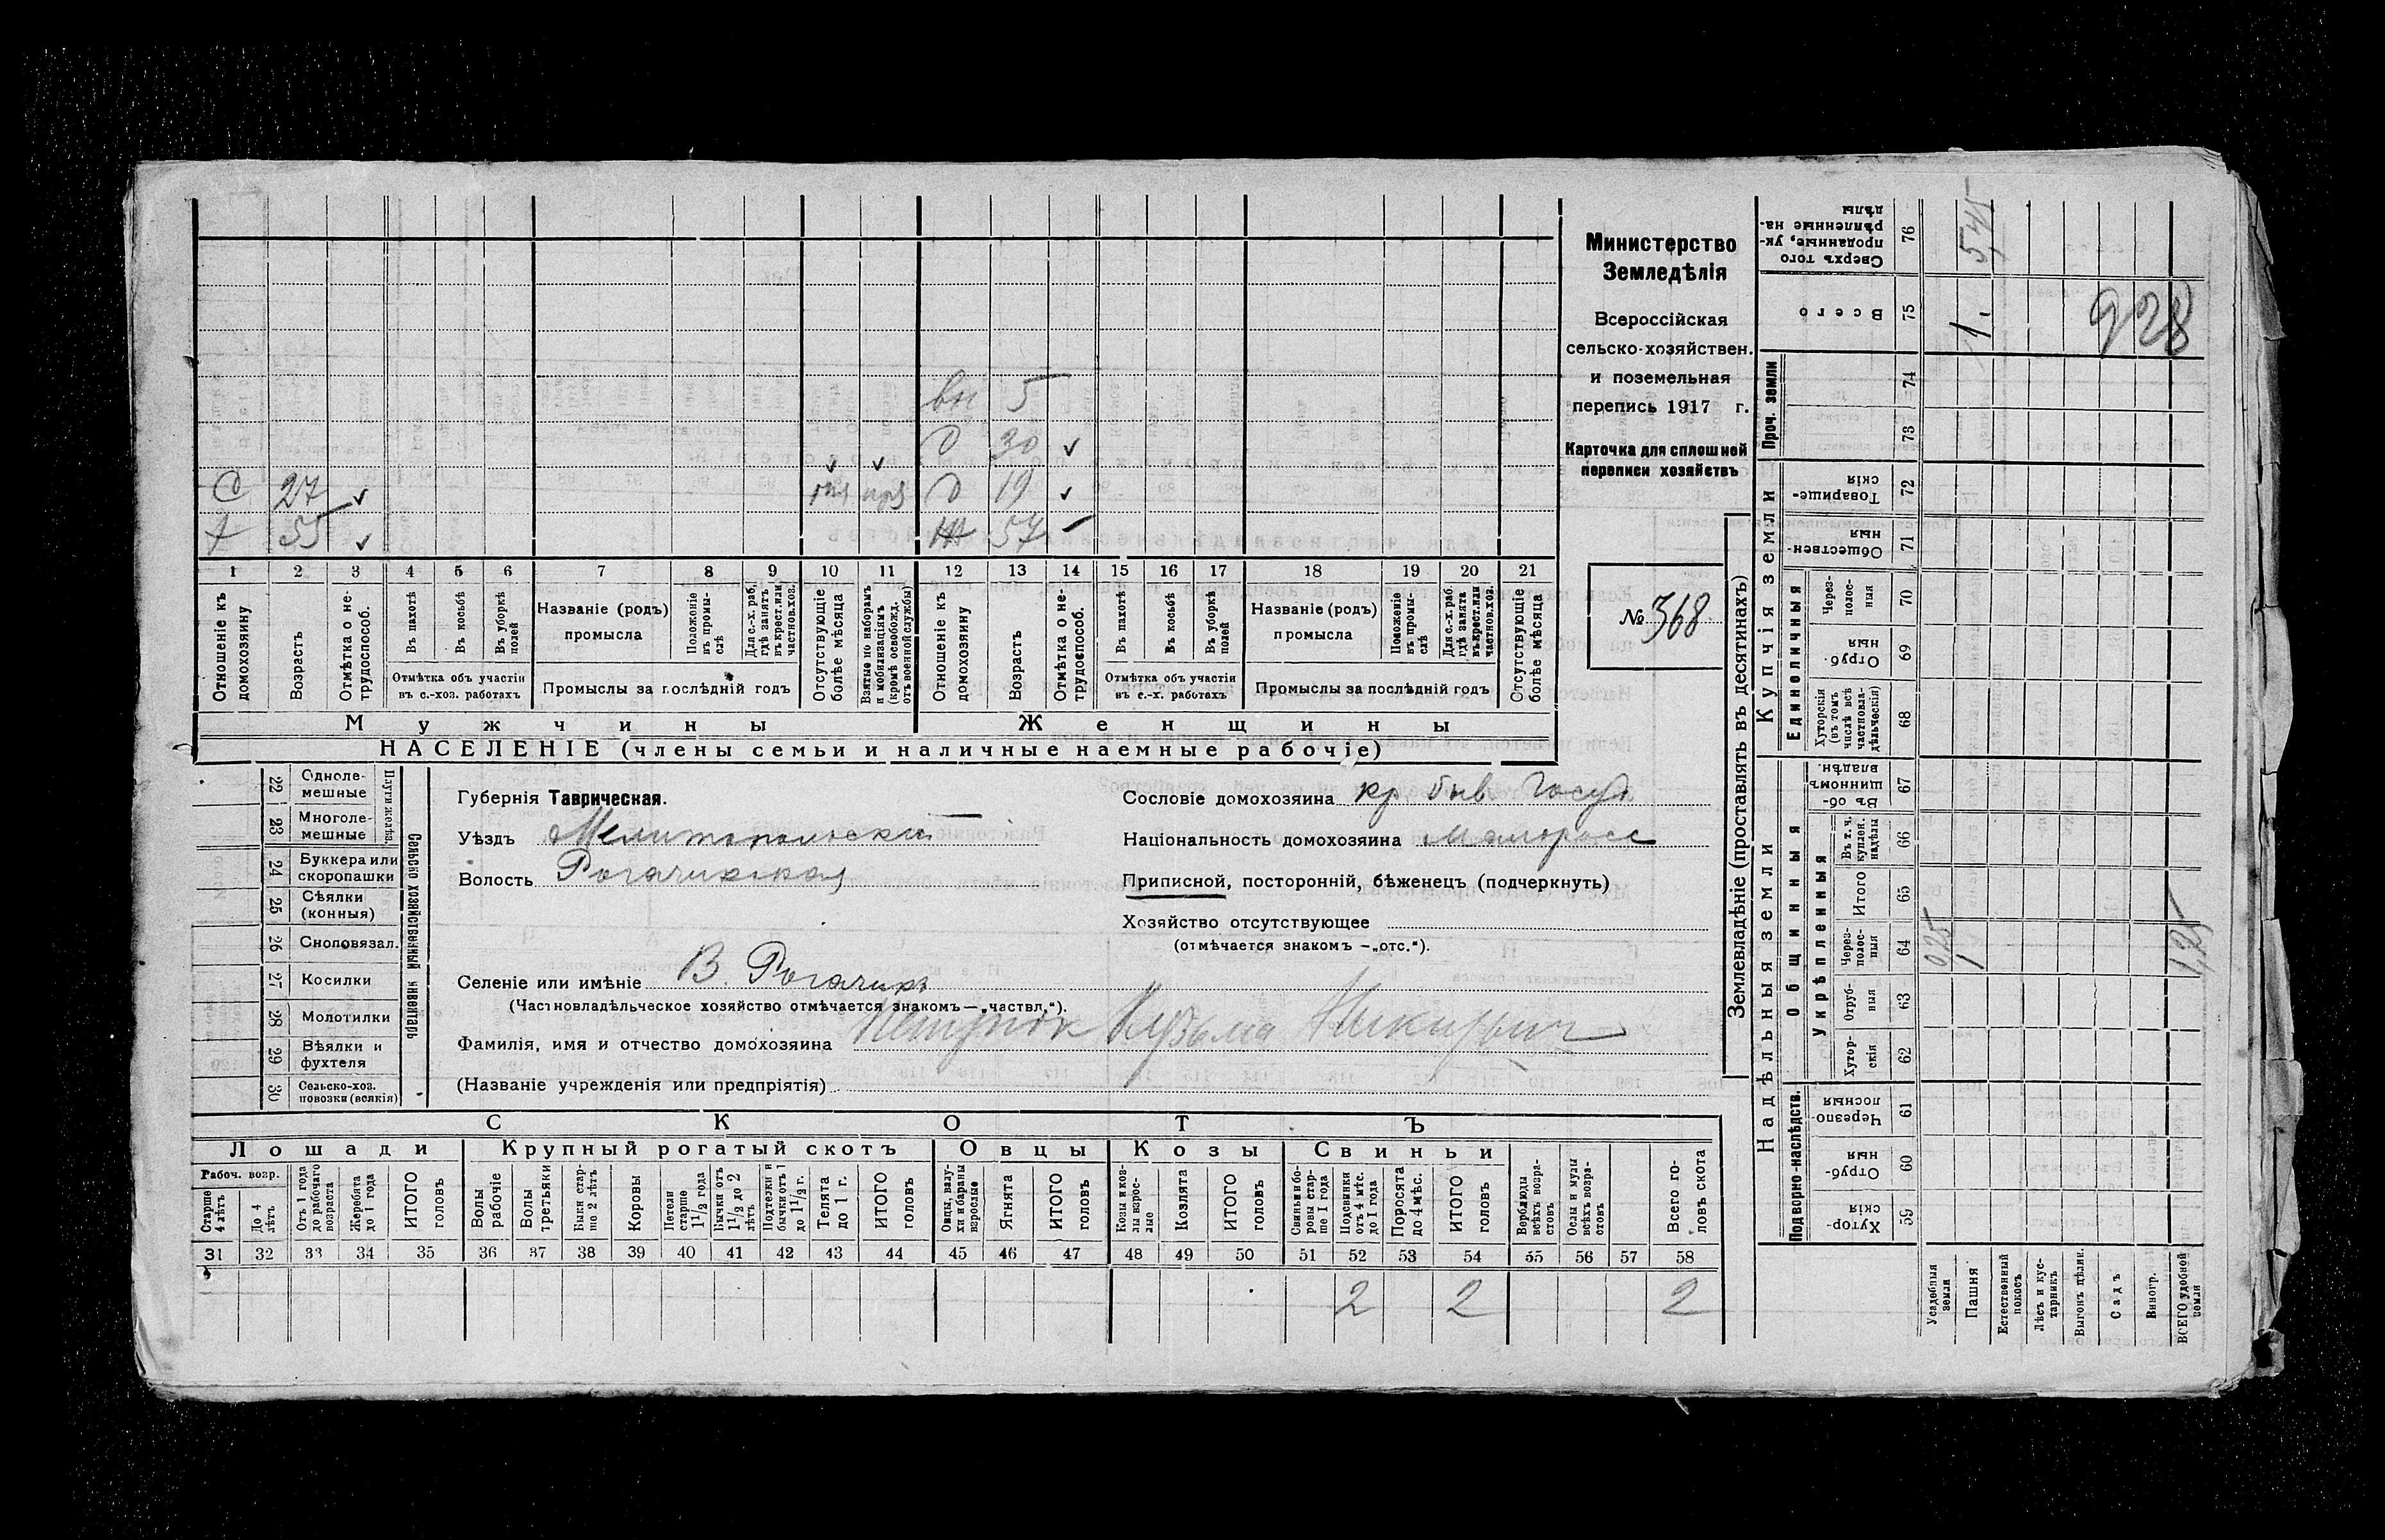 Министерство
Земледѣлія
Всероссійская
сельско-хозяйствен.
и поземельная
перепись 1917 г.
Карточка для сплошной
переписи хозяйствъ
№ 368
вн 5
д 30 ✓
✓ ✓
С 27 ✓ д 19 ✓
х 55 ✓ ж 57 –
1 2 3 4 5 6 7 8 9 10 11 12 13 14 15 16 17 18 19 20 21
Отношеніе къ домохозяину
Возрастъ
Отмѣтка о не-трудоспособ.
Въ пахотѣ
Въ косьбѣ
Въ уборкѣ полей
Отмѣтка объ участіи въ с.-хоз. работахъ
Названіе (родъ) промысла
Положеніе въ промы-слѣ
Для с.-х. раб. гдѣ занятъ въ крест. или частнов. хоз.
Промыслы за послѣдній годъ
Отсутствующіе болѣе мѣсяца
Взятые по наборамъ и мобилизаціямъ (кромѣ освобожд. отъ военной службы)
Отношеніе къ домохозяину
Возрастъ
Отмѣтка о не-трудоспособ.
Въ пахотѣ
Въ косьбѣ
Въ уборкѣ полей
Отмѣтка объ участіи въ с.-х. работахъ
Названіе (родъ) промысла
Положеніе въ промы-слѣ
Для с.-х. раб. гдѣ занята въ крест. или частнов. хоз.
Промыслы за послѣдній годъ
Отсутствующіе болѣе мѣсяца
Мужчины Женщины
НАСЕЛЕНІЕ (члены семьи и наличные наемные рабочіе)
22 Одноле-мешные
23 Многоле-мешные
Плуги желѣз.
24 Буккера или скоропашки
25 Сѣялки (конныя)
26 Сноповязал.
27 Косилки
28 Молотилки
29 Вѣялки и фухтеля
30 Сельско-хоз. повозки (всякія)
Сельско хозяйственный инвентарь
Губернія Таврическая.
Уѣздъ Мелитопольскій
Волость Рогачикская
Сословіе домохозяина кр. быв Госуд
Національность домохозяина малоросс
Приписной, посторонній, бѣженецъ (подчеркнуть)
Хозяйство отсутствующее
(отмѣчается знакомъ —„отс.“).
Селеніе или имѣніе В. Рогачикъ
(Частновладѣльческое хозяйство отмѣчается знакомъ—„частвл.“).
Фамилія, имя и отчество домохозяина Кузьма
(Названіе учрежденія или предпріятія)
СКОТЪ
Лошади Крупный рогатый скотъ Овцы Козы Свиньи
Рабоч. возр.
Старше 4 лѣтъ
До 4 лѣтъ
Отъ 1 года до рабочаго возраста
Жеребята до 1 года
ИТОГО головъ
Волы рабочіе
Волы третьяки
Быки стар-ше 2 лѣтъ
Коровы
Нетели старше 1½ года
Бычки отъ 1½ до 2 лѣтъ
Подтелки и бычки отъ 1 до 1½ г.
Телята до 1 г.
ИТОГО головъ
Овцы, валу-хи и бараны взрослые
Ягнята
ИТОГО головъ
Козы и коз-лы взрос-лые
Козлята
ИТОГО головъ
Свиньи и бо-ровы стар-ше 1 года
Подсвинки отъ 4 мѣс. до 1 года
Поросята до 4 мѣс.
ИТОГО головъ
Верблюды всѣхъ возра-стовъ
Ослы и мулы всѣхъ возра-стовъ
Всего го-ловъ скота
31 32 33 34 35 36 37 38 39 40 41 42 43 44 45 46 47 48 49 50 51 52 53 54 55 56 57 58
2 2 2
Землевладѣніе (проставлять въ десятинахъ)
Сверхъ того проданные, ук-рѣпленные на-дѣлы 76 5,45
Всего 75 1. 928
Проч. земли
74
73
Купчія земли
Товарище-скія 72
Обществен-ныя 71
Единоличныя
Через-полос-ныя 70
Отруб-ныя 69
Хуторскія (въ томъ числѣ всѣ частновла-дѣльческія) 68
Надѣльныя земли
Общинныя
Въ об-щинномъ владѣн. 67
Укрѣпленныя
Въ т. ч. куплен. надѣлы 66
Итого 65
Через-полос-ныя 64 0,25 1 1,25
Отруб-ныя 63
Хутор-скія 62
Подворно-наслѣдств.
Черезпо-лосныя 61
Отруб-ныя 60
Хутор-скія 59
Усадебныя земли
Пашня
Естественный покосъ
Лѣсъ и кус-тарникъ
Выгонъ цѣлин.
Садъ
Виногр.
ВСЕГО удобной земли